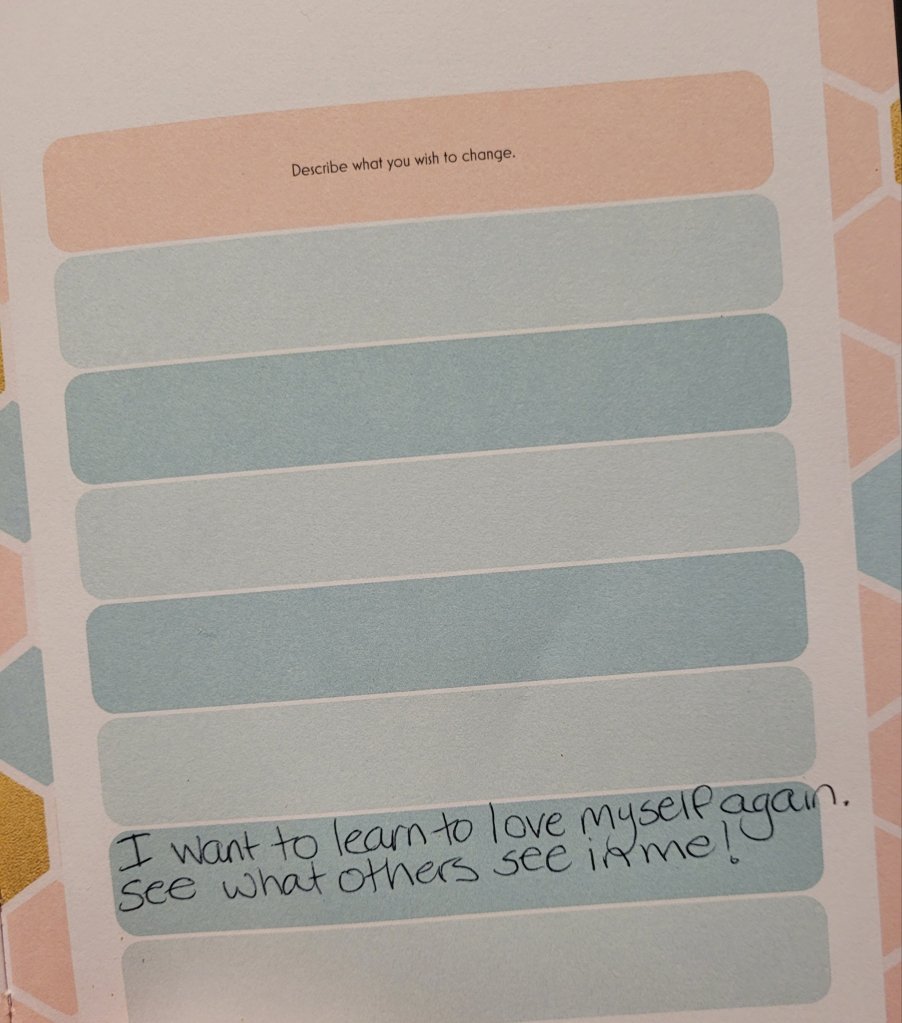 Describe what you wish to change.
I want to learn to love myself again.
see what others see in me!